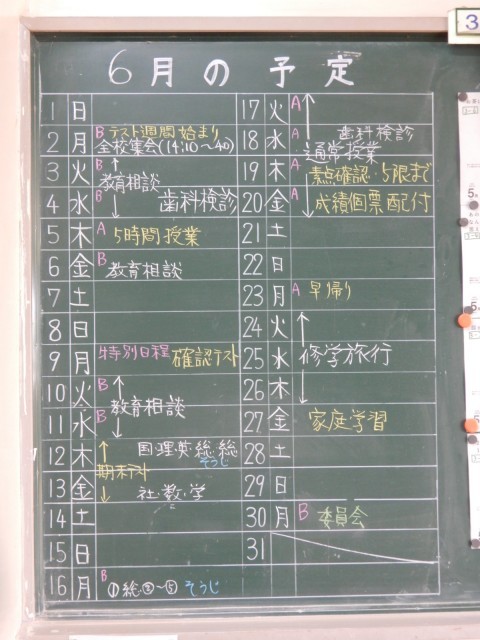 6月の予定
1 日
2 月 B テスト週間始まり
全校集会(14:10~40)
3 火 B 教育相談
4 水 B 歯科検診
5 木 A 5時間授業
6 金 B 教育相談
7 土
8 日
9 月 特別日程 確認テスト
10 火 B 教育相談
11 水 B
12 木 国・理・英・総・総
そうじ
期末テスト
13 金 社・数・学
14 土
15 日
16 月 B ①総②~⑤ そうじ
17 火 A
18 水 A 歯科検診
通常授業
19 木 A 素点確認・5限まで
20 金 A 成績個票配付
21 土
22 日
23 月 A 早帰り
24 火
25 水 修学旅行
26 木
27 金 家庭学習
28 土
29 日
30 月 B 委員会
31
3